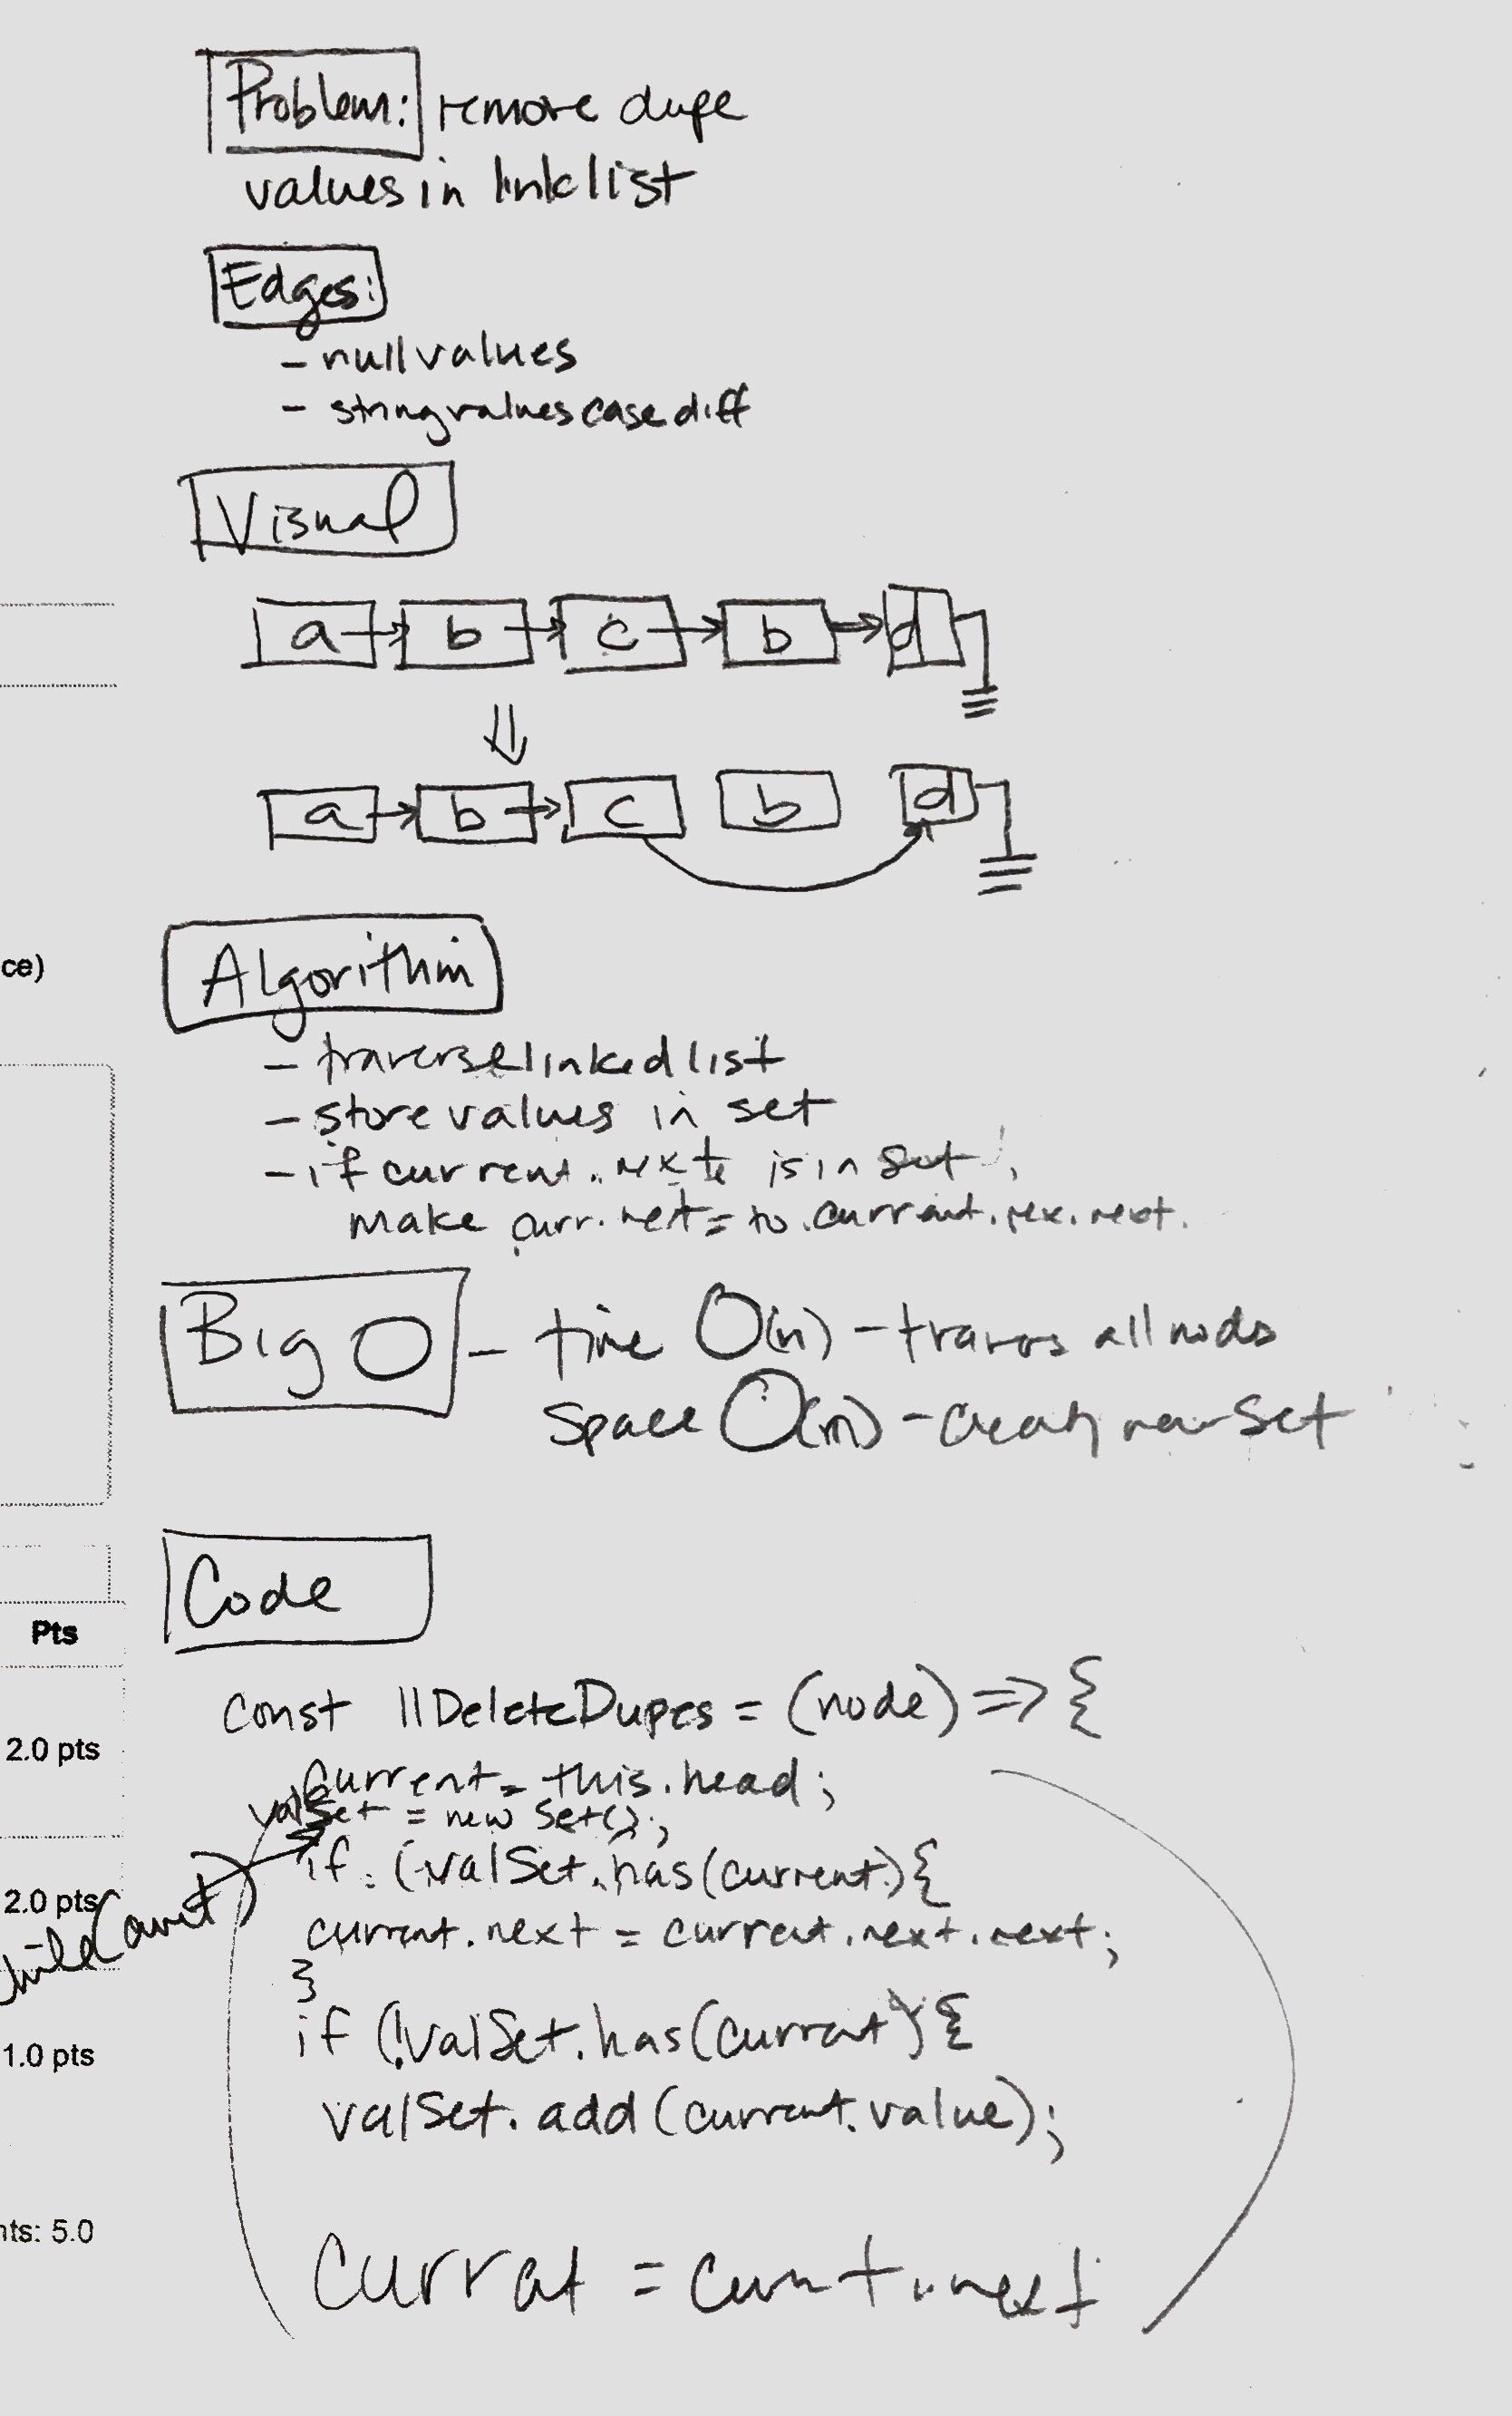 Problem: remove dupe
values in link list
Edges:
- null values
- string values case diff
Visual
a b c b d
a b c b d
Algorithim
ce)
- traverse linked list
- store values in set
- if current.next is in set,
make curr.next = to.current.nex.next.
Big O - time O(n) - travers all nods
Space O(n) - new set
Code
Pts
const llDeleteDupes = (node) => {
2.0 pts
current = this.head;
valSet = new Set();
if (valSet.has(current){
2.0 pts
current.next = current.next.next;
}
if (!valSet.has(current){
1.0 pts
valSet.add(current.value);
nts: 5.0
Currat = .next